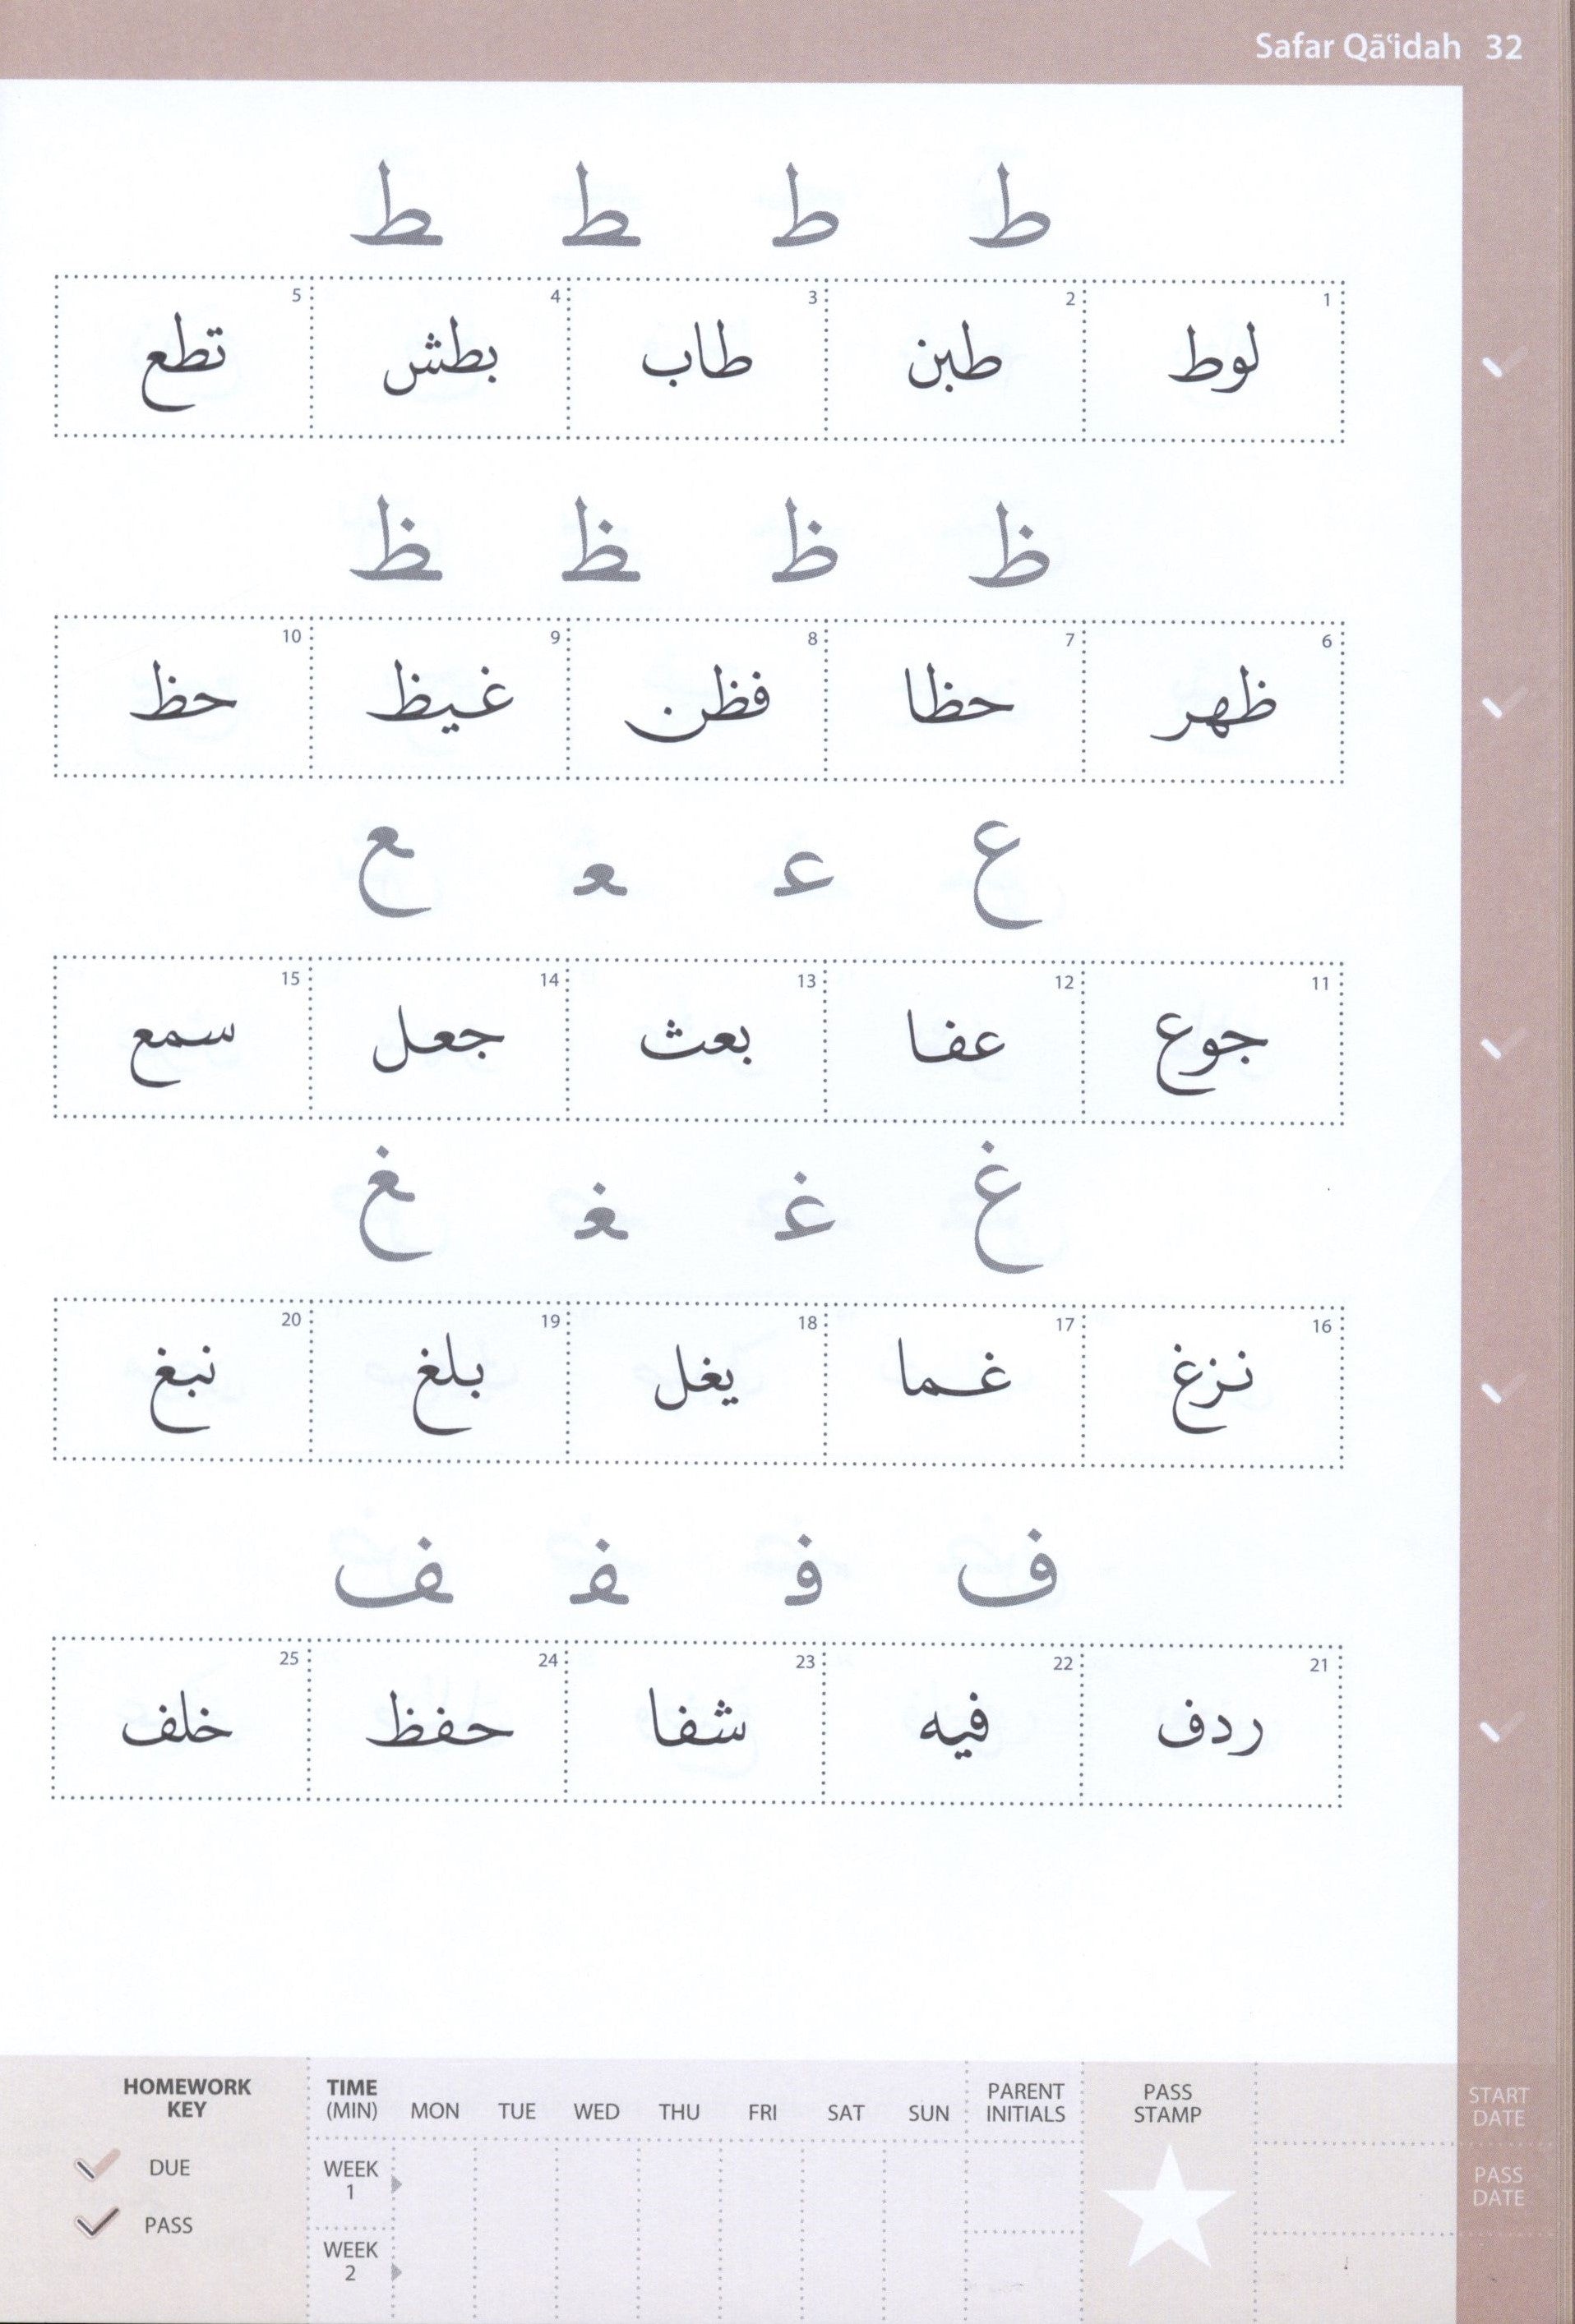 Safar Qāʿidah 32
ط طـ ـطـ ـط
1 2 3 4 5
لوط طبن طاب بطش تطع
ظ ظـ ـظـ ـظ
6 7 8 9 10
ظهر حظا فظن غيظ حظ
ع عـ ـعـ ـع
11 12 13 14 15
جوع عفا بعث جعل سمع
غ غـ ـغـ ـغ
16 17 18 19 20
نزغ غما يغل بلغ نبغ
ف فـ ـفـ ـف
21 22 23 24 25
ردف فيه شفا حفظ خلف
HOMEWORK KEY
DUE
PASS
TIME (MIN) MON TUE WED THU FRI SAT SUN PARENT INITIALS
WEEK 1
WEEK 2
PASS STAMP
START DATE
PASS DATE